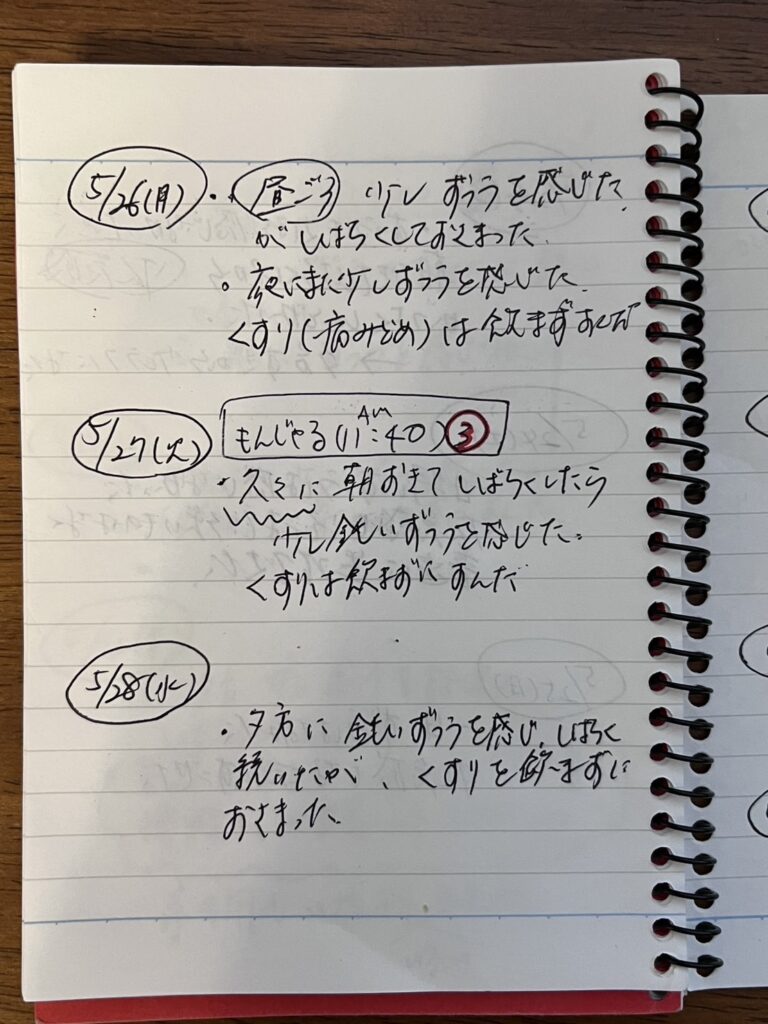 5/26(月)
・昼ごろ 少し ずつうを感じた
がしばらくしておさまった.
・夜にまた少しずつうを感じた.
くすり(痛みどめ)は飲まず
5/27(火)
もんじゃる(11:40) ③
AM
・久々に 朝おきてしばらくしたら
少し鈍いずつうを感じた。
くすりは飲まずにすんだ
5/28(水)
・夕方に 鈍いずつうを感じ、しばらく
続いたが、くすりを飲まずに
おさまった.